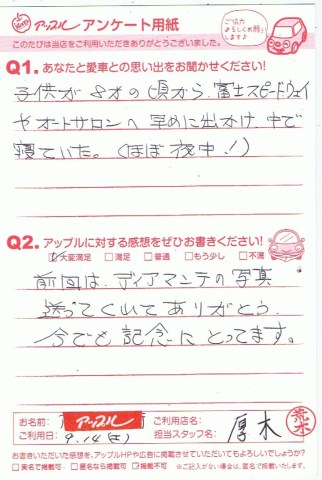 アップル アンケート用紙
このたびは当店をご利用いただきありがとうございました。
ご協力
よろしくお願い
します♪
Q1. あなたと愛車との思い出をお聞かせください!
子供が8才の頃から、富士スピードウェイ
やオートサロンへ早めに出かけ、中で
寝ていた。(ほぼ夜中!)
Q2. アップルに対する感想をぜひお書きください!
☑大変満足 □満足 □普通 □もう少し □不満
前回は、ディアマンテの写真
送ってくれてありがとう。
今でも記念にとってます。
お名前: アップル
ご利用店名:
ご利用日: 9.14(土)
担当スタッフ名: 厚木
荒木
お書きいただいた感想を、アップルHPや広告に掲載させていただいてもよろしいでしょうか?
□実名で掲載可 □匿名なら掲載可 ☑掲載不可 ※ご記入がない場合は、匿名で掲載いたします。